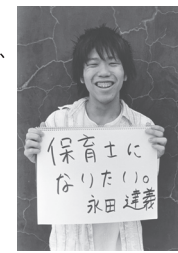 、
保育士に
なりたい。
永田達義